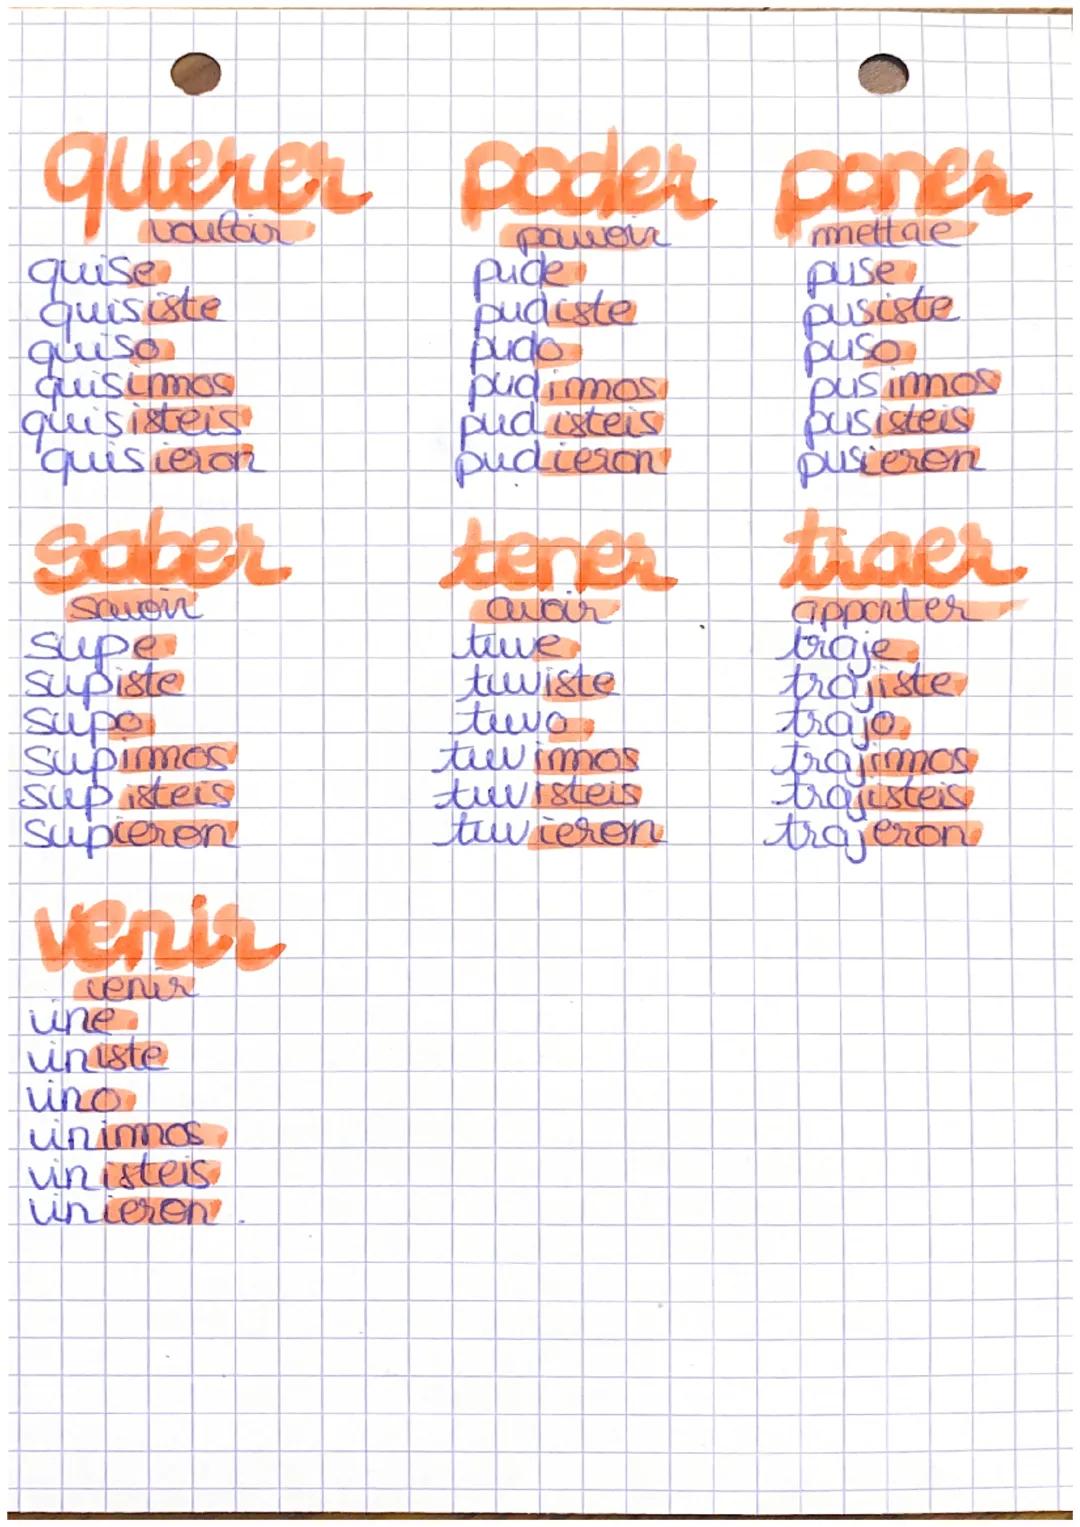 querer
vouloir
quise
quisiste
quiso
quisimos
quisisteis
quisieron
poder
pouvoir
pude
pudiste
pudo
pudimos
pudisteis
pudieron
poner
puse
pusiste
puso
pusimos
pusisteis
pusieron
saber
savoir
supe
supiste
supo
supimos
supisteis
supieron
tener
avoir
tuve
tuviste
tuvo
tuvimos
tuvisteis
tuvieron
traer
apporter
traje
trajiste
trajo
trajimos
trajisteis
trajeron
venir
venir
vine
viniste
vino
vinimos
vinisteis
vinieron.